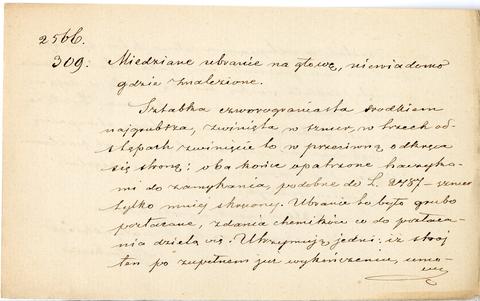 256b.
309: Miedziane ubranie na głowę, niewiadomo
gdzie znalezione.
Sztabka czworograniasta środkiem
najgrubsza, zwinięta w sznur, w trzech od-
stępach zwinięcie to w przeciwną odkręca
się stronę; oba końce opatrzone haczyka-
mi do zamykania, podobne do L. 2757 – sznur
tylko mniej skręcony. Ubranie to było grubo
pozłacane, zdania chemików co do pozłaca-
nia dzielą się. Utrzymują jedni: iż strój
ten po zupełnem już wykończeniu, umo-